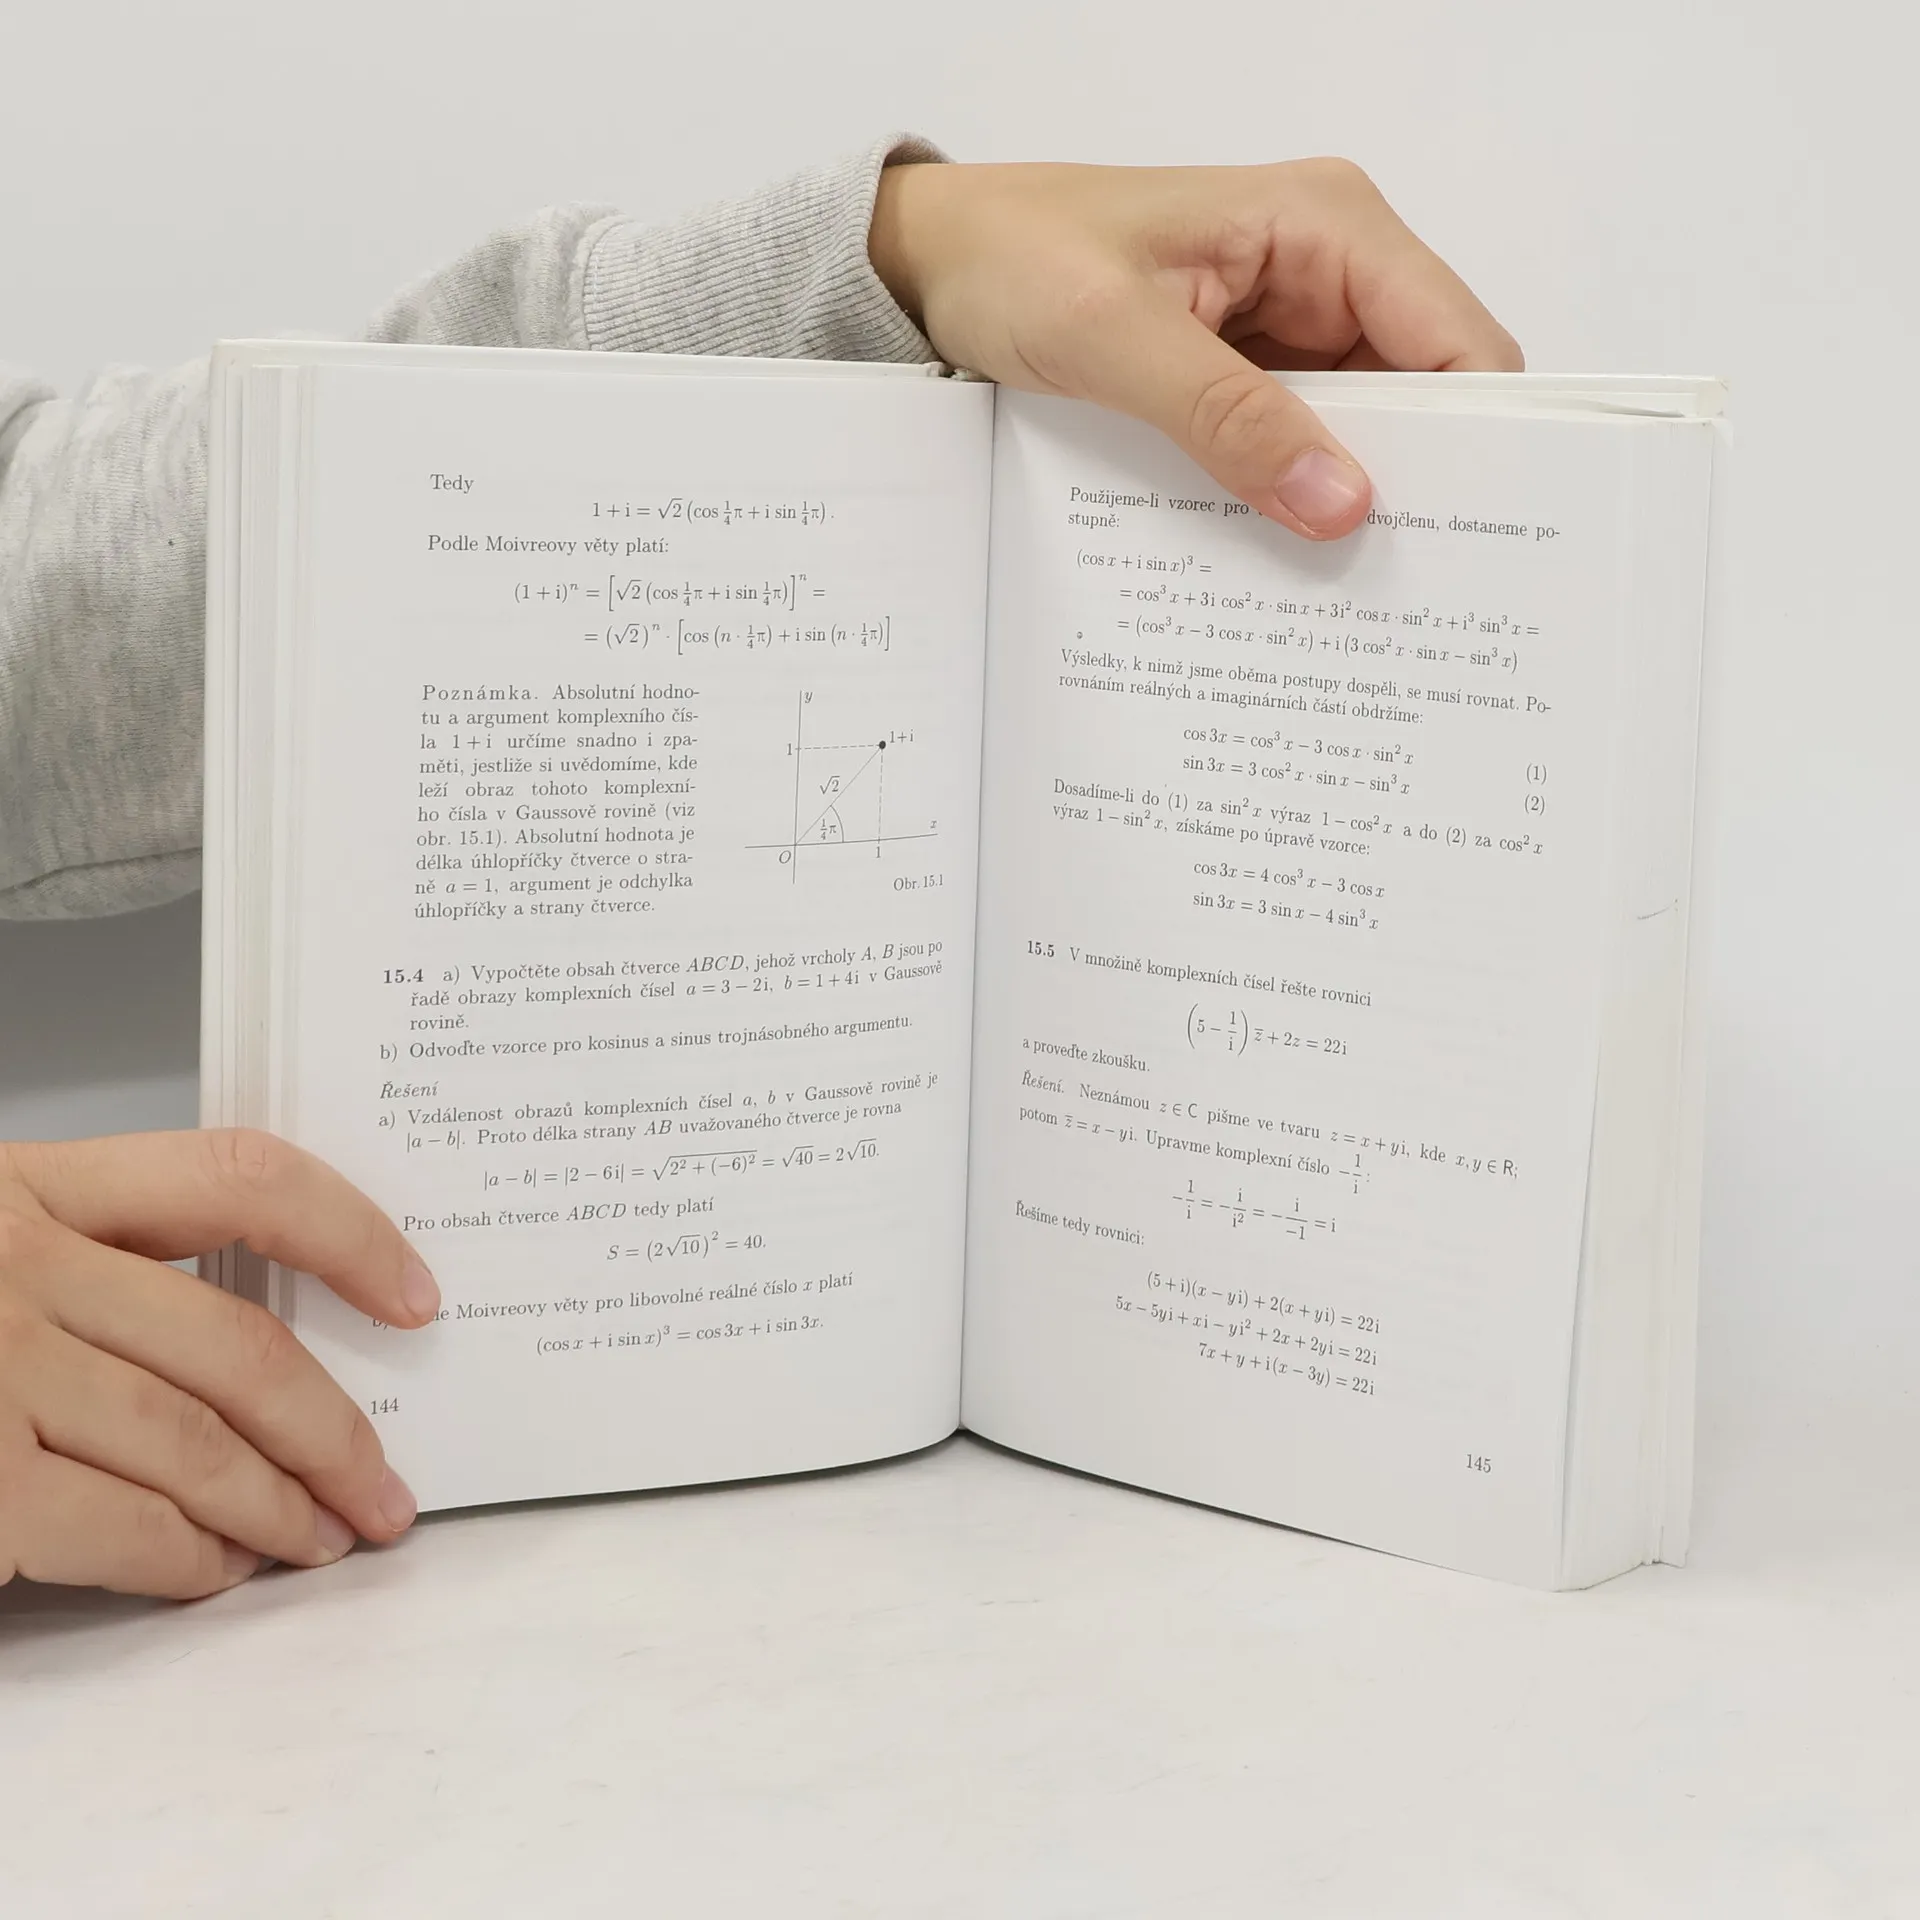 Tedy
1 + i = √2 (cos ¼π + i sin ¼π).
Podle Moivreovy věty platí:
(1 + i)ⁿ = [√2 (cos ¼π + i sin ¼π)]ⁿ =
= (√2)ⁿ · [cos (n · ¼π) + i sin (n · ¼π)]
Poznámka. Absolutní hodno-
tu a argument komplexního čís-
la 1 + i určíme snadno i zpa-
měti, jestliže si uvědomíme, kde
leží obraz tohoto komplexní-
ho čísla v Gaussově rovině (viz
obr. 15.1). Absolutní hodnota je
délka úhlopříčky čtverce o stra-
ně a = 1, argument je odchylka
úhlopříčky a strany čtverce.
y
1
1+i
√2
¼π
x
O
1
Obr. 15.1
15.4 a) Vypočtěte obsah čtverce ABCD, jehož vrcholy A, B jsou po
řadě obrazy komplexních čísel a = 3 − 2i, b = 1 + 4i v Gaussově
rovině.
b) Odvoďte vzorce pro kosinus a sinus trojnásobného argumentu.
Řešení
a) Vzdálenost obrazů komplexních čísel a, b v Gaussově rovině je
|a − b|. Proto délka strany AB uvažovaného čtverce je rovna
|a − b| = |2 − 6i| = √(2² + (−6)²) = √40 = 2√10.
Pro obsah čtverce ABCD tedy platí
S = (2√10)² = 40.
Moivreovy věty pro libovolné reálné číslo x platí
(cos x + i sin x)³ = cos 3x + i sin 3x.
144
Použijeme-li vzorec pro dvojčlenu, dostaneme po-
stupně:
(cos x + i sin x)³ =
= cos³ x + 3i cos² x · sin x + 3i² cos x · sin² x + i³ sin³ x =
= (cos³ x − 3 cos x · sin² x) + i (3 cos² x · sin x − sin³ x)
Výsledky, k nimž jsme oběma postupy dospěli, se musí rovnat. Po-
rovnáním reálných a imaginárních částí obdržíme:
cos 3x = cos³ x − 3 cos x · sin² x (1)
sin 3x = 3 cos² x · sin x − sin³ x (2)
Dosadíme-li do (1) za sin² x výraz 1 − cos² x a do (2) za cos² x
výraz 1 − sin² x, získáme po úpravě vzorce:
cos 3x = 4 cos³ x − 3 cos x
sin 3x = 3 sin x − 4 sin³ x
15.5 V množině komplexních čísel řešte rovnici
(5 − 1/i) z̄ + 2z = 22i
a proveďte zkoušku.
Řešení. Neznámou z ∈ C pišme ve tvaru z = x + yi, kde x, y ∈ R;
potom z̄ = x − yi. Upravme komplexní číslo −1/i:
−1/i = −i/i² = −i/−1 = i
Řešíme tedy rovnici:
(5 + i)(x − yi) + 2(x + yi) = 22i
5x − 5yi + xi − yi² + 2x + 2yi = 22i
7x + y + i(x − 3y) = 22i
145